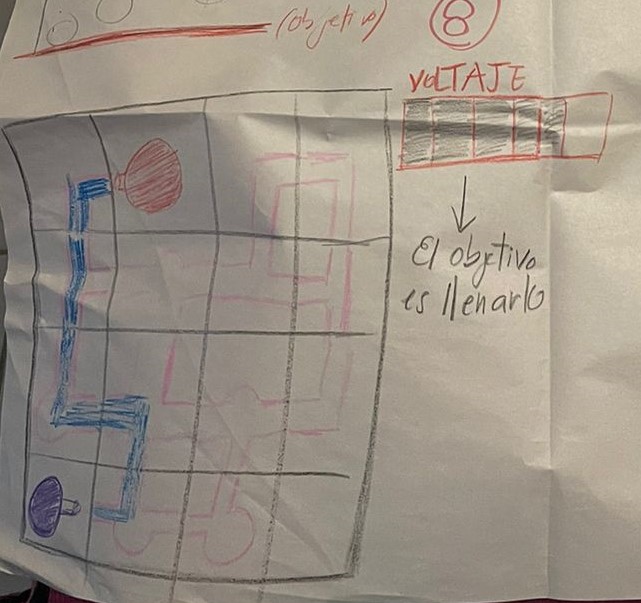 (objetivo)
8
VOLTAJE
El objetivo
es llenarlo